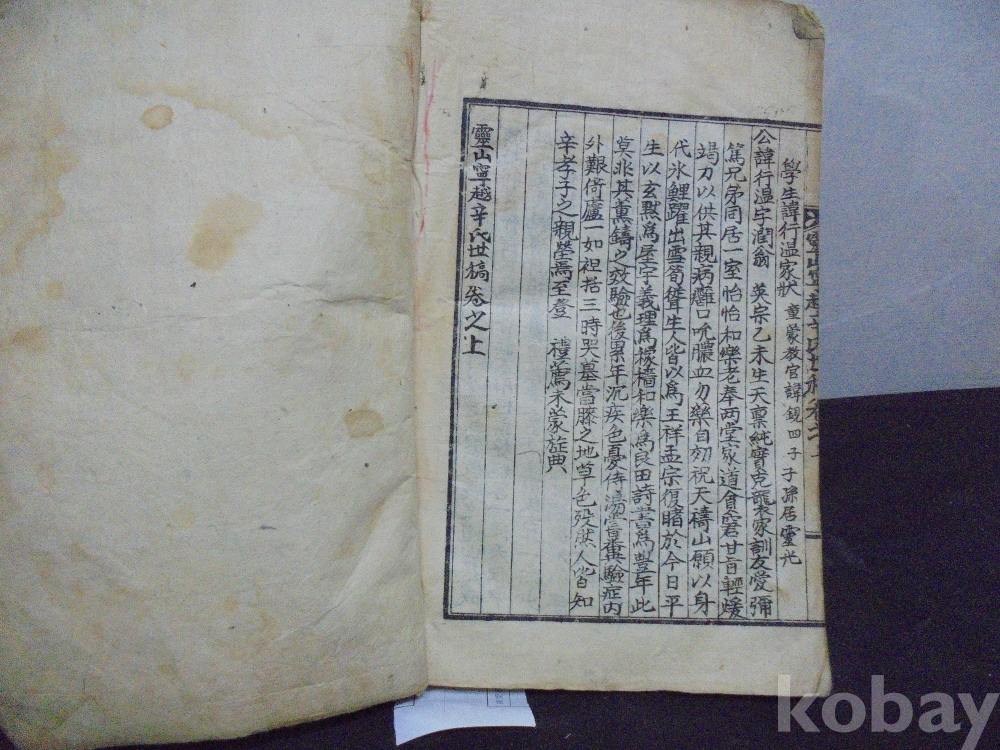 靈山寧越辛氏世稿卷之
學生諱行溫家狀 童蒙敎官諱鋧四子子孫居靈光
公諱行溫字潤翁 英宗乙未生天禀純實克襲家訓友愛彌
篤兄弟同居一室怡怡和樂老奉两堂家道貧窘甘旨輕煖
竭力以供其親病癰口吮膿血勿藥自効祝天禱山願以身
代氷鯉躍出雪筍聳生人皆以爲王祥孟宗復睹於今日平
生以玄黙爲屋宇義理爲椽樯和樂爲良田詩書爲豊年此
莫非其薰鑄之效驗也後累年沉疾色憂侍湯嘗糞驗症内
外艱倚廬一如袒括三時哭墓當膝之地草色殁然人皆知
辛孝子之親塋焉至登 禮薦未蒙㫌典
靈山寧越辛氏世稿卷之上
kobay